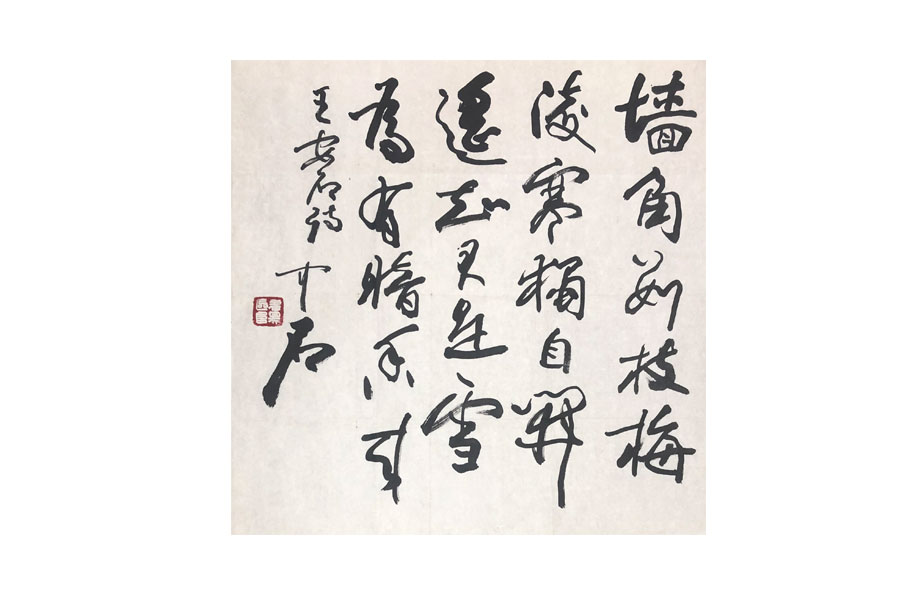 墙角数枝梅
淩寒獨自開
遥知不是雪
為有暗香来
王安石诗 中石